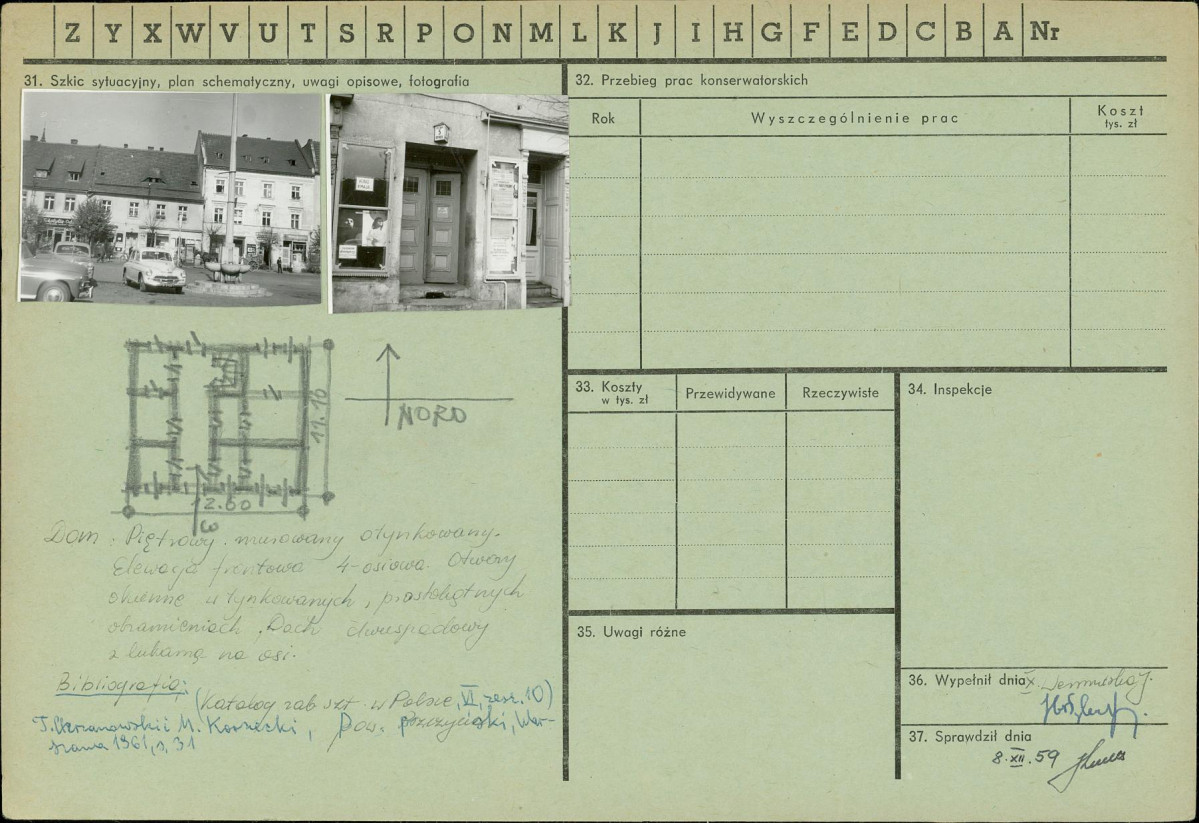 Z Y X W V U T S R P O N M L K J I H G F E D C B A Nr
31. Szkic sytuacyjny, plan schematyczny, uwagi opisowe, fotografia
NORD
11.10
12.60
Dom: Piętrowy. murowany otynkowany.
Elewacja frontowa 4-osiowa. Otwory
okienne w tynkowanych, prostokątnych
obramieniach. Dach dwuspadowy
z lukarną na osi.
Bibliografia:
(Katalog zab. szt. w Polsce, VI, zesz. 10)
T. Chrzanowski i M. Kornecki, Pow. pszczyński, War-
szawa 1961, s. 31
32. Przebieg prac konserwatorskich
Rok
Wyszczególnienie prac
Koszt
tys. zł
33. Koszty
w tys. zł
Przewidywane
Rzeczywiste
34. Inspekcje
35. Uwagi różne
36. Wypełnił dnia
37. Sprawdził dnia
8.XII.59